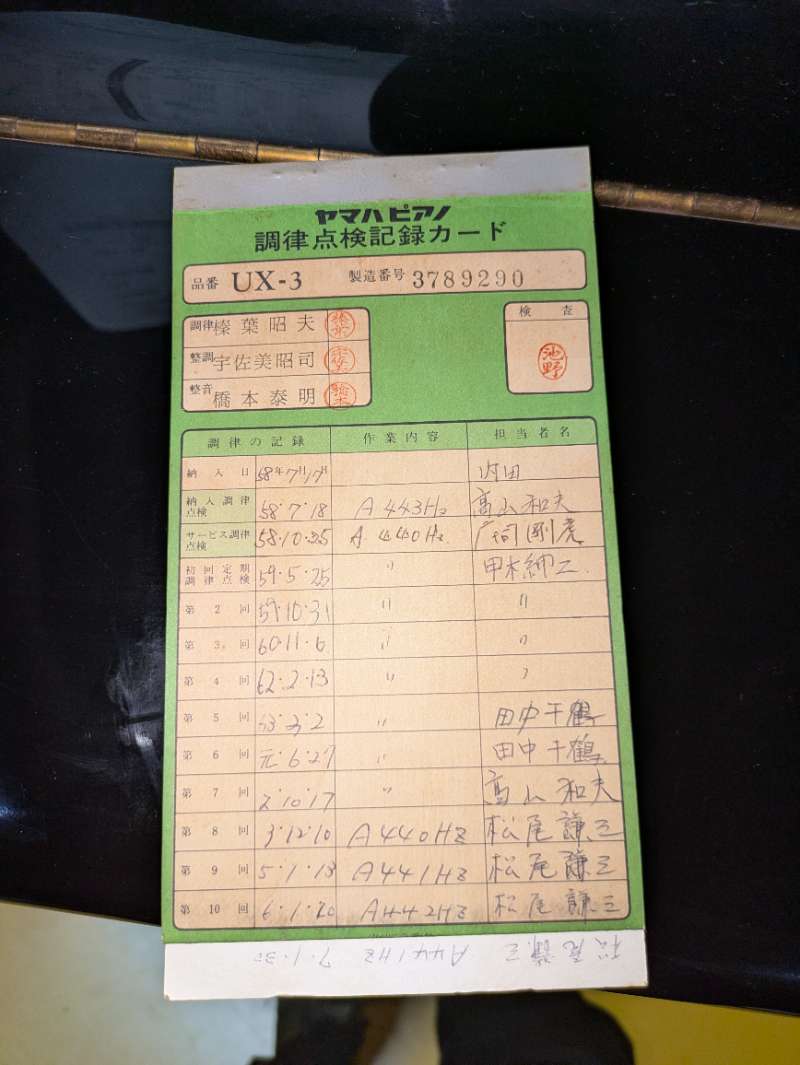 ヤマハピアノ
調律点検記録カード
品番 UX-3 製造番号 3789290
調律 榛葉昭夫 検査
整調 宇佐美昭司 池野
整音 橋本泰明
調律の記録 作業内容 担当者名
納入日 58年7月17日 内田
納入調律点検 58・7・18 A 443Hz 髙山和夫
サービス調律点検 58・10・25 A 440Hz
初回定期調律点検 59・5・25 〃
第2回 59・10・31 〃 〃
第3回 60・11・6 〃 〃
第4回 62・2・13 〃 〃
第5回 63・3・2 〃 田中千鶴
第6回 元・6・27 〃 田中千鶴
第7回 2・10・17 〃 髙山和夫
第8回 3・12・10 A440HZ 松尾謙三
第9回 5・1・13 A441HZ 松尾謙三
第10回 6・1・20 A442HZ 松尾謙三
7・1・30 A441HZ 松尾謙三